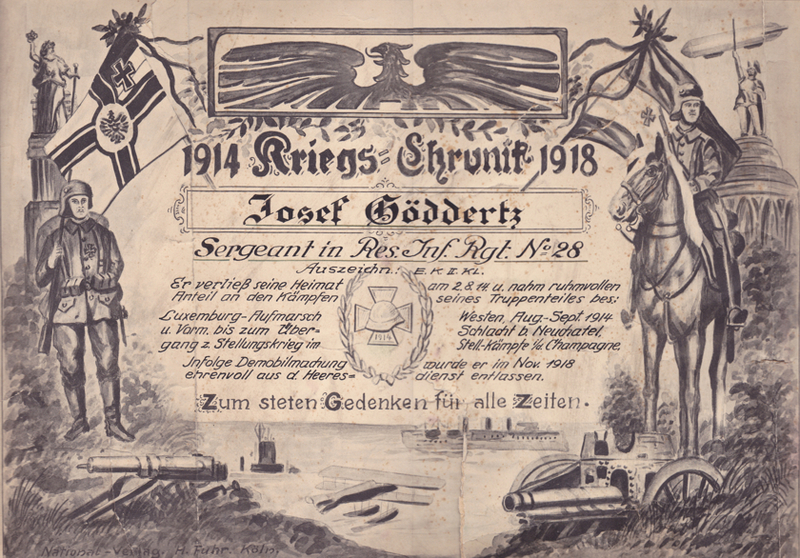 1914 Kriegs=Chronik 1918
Josef Göddertz
Sergeant in Res. Inf. Rgt. No 28
Auszeichn.: E. K. II. Kl.
Er verließ seine Heimat am 2.8.14 u. nahm ruhmvollen
Anteil an den Kämpfen seines Truppenteiles bei:
Luxemburg-Aufmarsch
u. Vorm. bis zum Über-
gang z. Stellungskrieg im
Westen, Aug.-Sept. 1914
Schlacht b. Neuchatel,
Stell-Kämpfe i/d. Champagne.
1914
Infolge Demobilmachung wurde er im Nov. 1918
ehrenvoll aus d. Heeres= dienst entlassen.
Zum steten Gedenken für alle Zeiten.
National-Verlag. H. Fuhr. Köln.